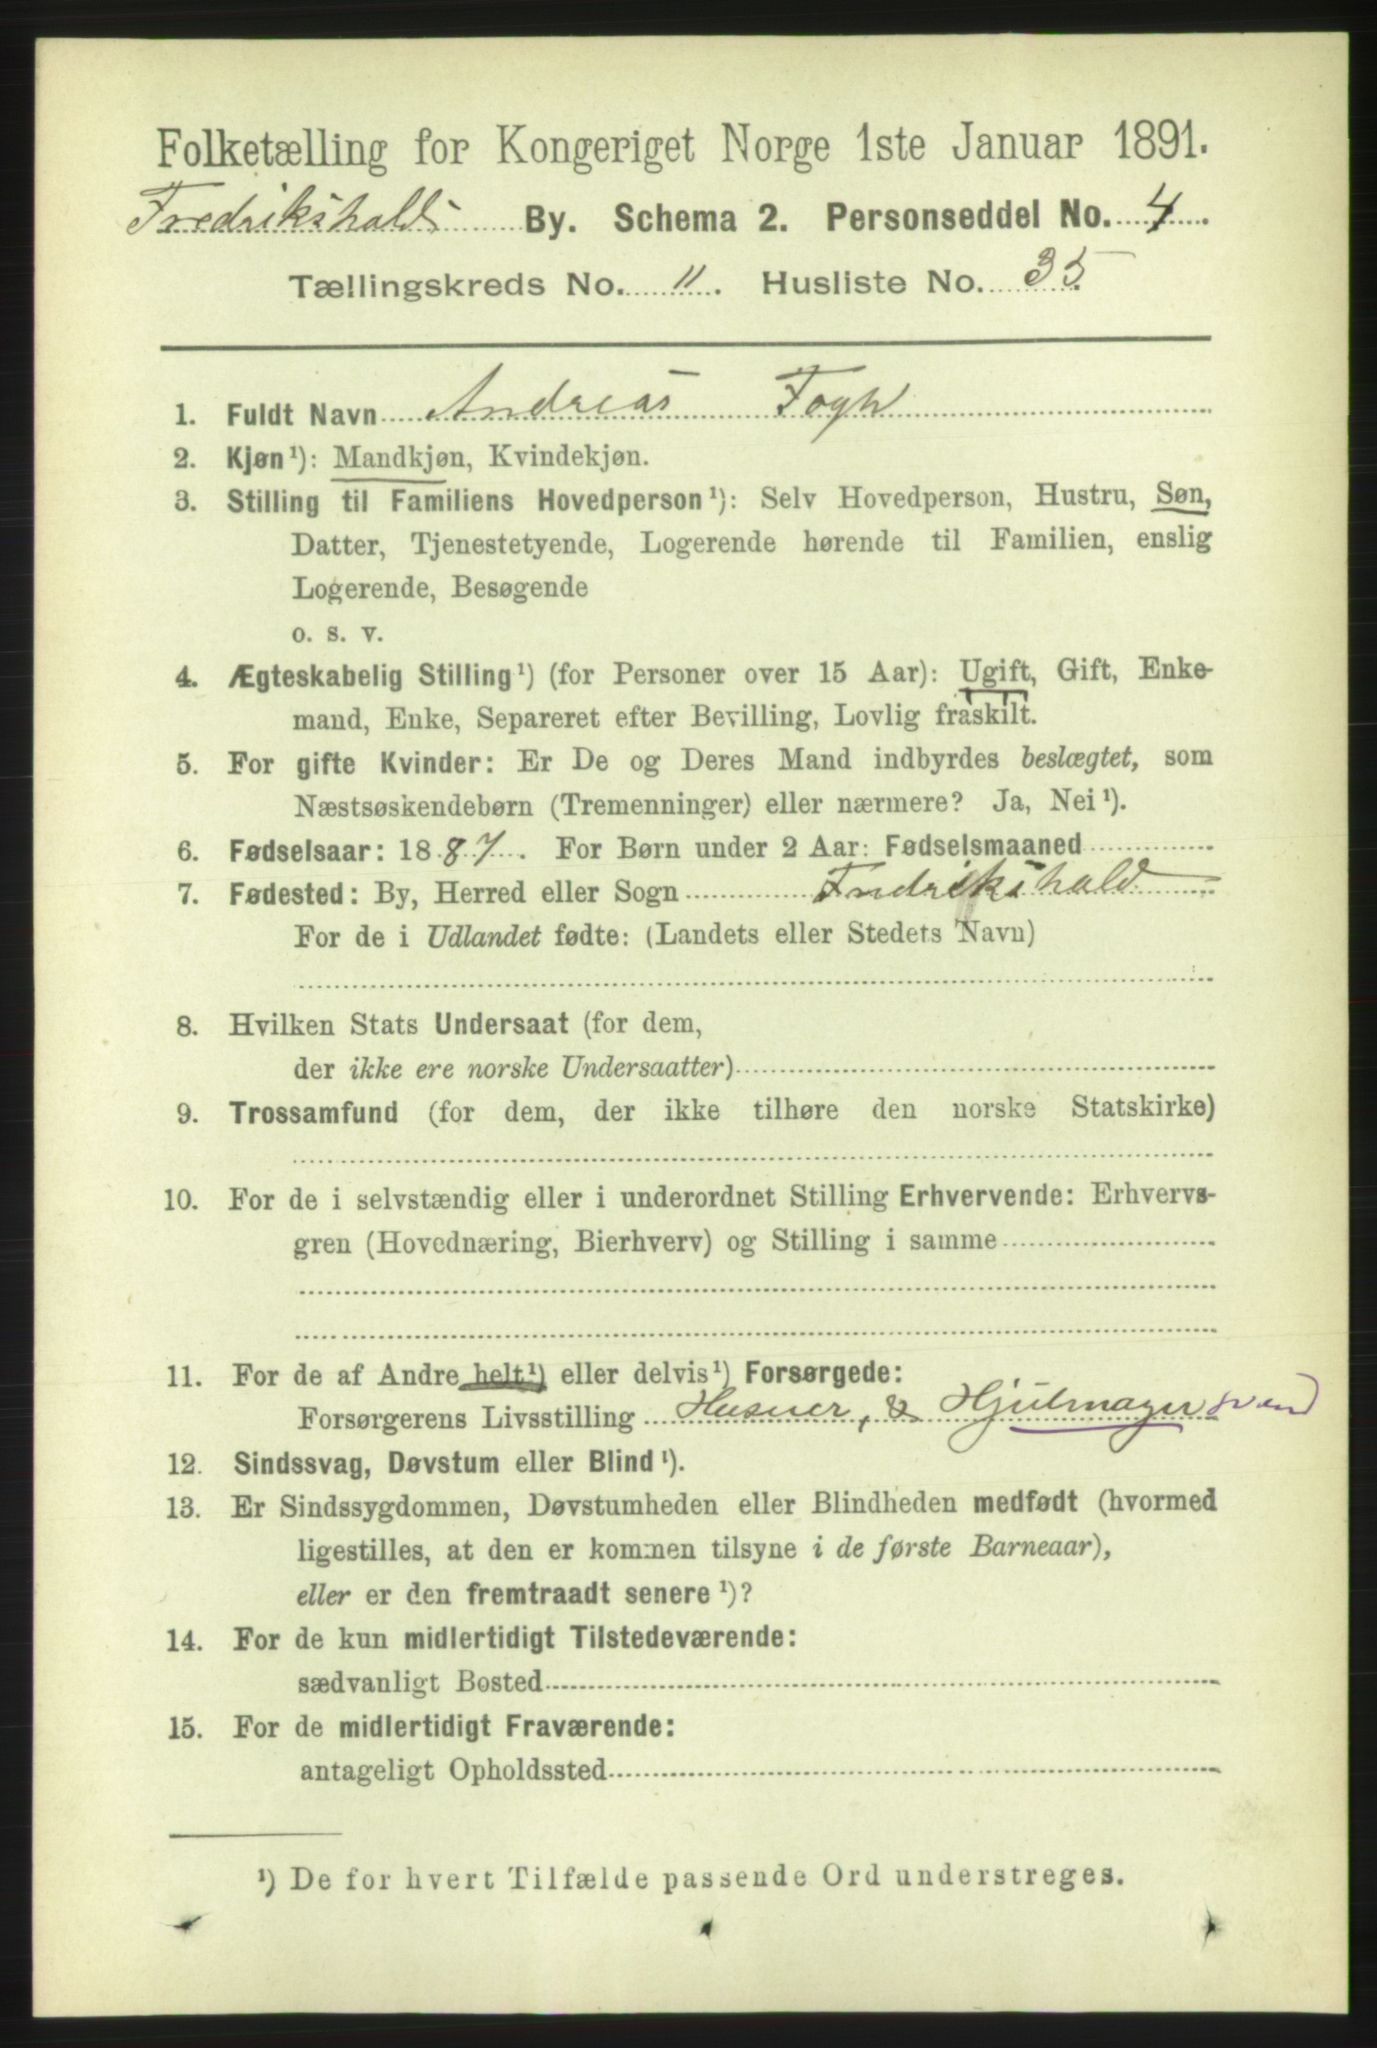 Folketælling for Kongeriget Norge 1ste Januar 1891.
Fredrikshalds By. Schema 2. Personseddel No. 4.
Tællingskreds No. 11. Husliste No. 35.
1. Fuldt Navn Andreas Fogh
2. Kjøn¹): Mandkjøn, Kvindekjøn.
3. Stilling til Familiens Hovedperson¹): Selv Hovedperson, Hustru, Søn,
Datter, Tjenestetyende, Logerende hørende til Familien, enslig
Logerende, Besøgende
o. s. v.
4. Ægteskabelig Stilling¹) (for Personer over 15 Aar): Ugift, Gift, Enke-
mand, Enke, Separeret efter Bevilling, Lovlig fraskilt.
5. For gifte Kvinder: Er De og Deres Mand indbyrdes beslægtet, som
Næstsøskendebørn (Tremenninger) eller nærmere? Ja, Nei¹).
6. Fødselsaar: 1887. For Børn under 2 Aar: Fødselsmaaned
7. Fødested: By, Herred eller Sogn Fredrikshald
For de i Udlandet fødte: (Landets eller Stedets Navn)
8. Hvilken Stats Undersaat (for dem,
der ikke ere norske Undersaatter)
9. Trossamfund (for dem, der ikke tilhøre den norske Statskirke)
10. For de i selvstændig eller i underordnet Stilling Erhvervende: Erhvervs-
gren (Hovednæring, Bierhverv) og Stilling i samme
11. For de af Andre helt¹) eller delvis¹) Forsørgede:
Forsørgerens Livsstilling Huseier, & Hjulmager svend
12. Sindssvag, Døvstum eller Blind¹).
13. Er Sindssygdommen, Døvstumheden eller Blindheden medfødt (hvormed
ligestilles, at den er kommen tilsyne i de første Barneaar),
eller er den fremtraadt senere¹)?
14. For de kun midlertidigt Tilstedeværende:
sædvanligt Bosted
15. For de midlertidigt Fraværende:
antageligt Opholdssted
¹) De for hvert Tilfælde passende Ord understreges.